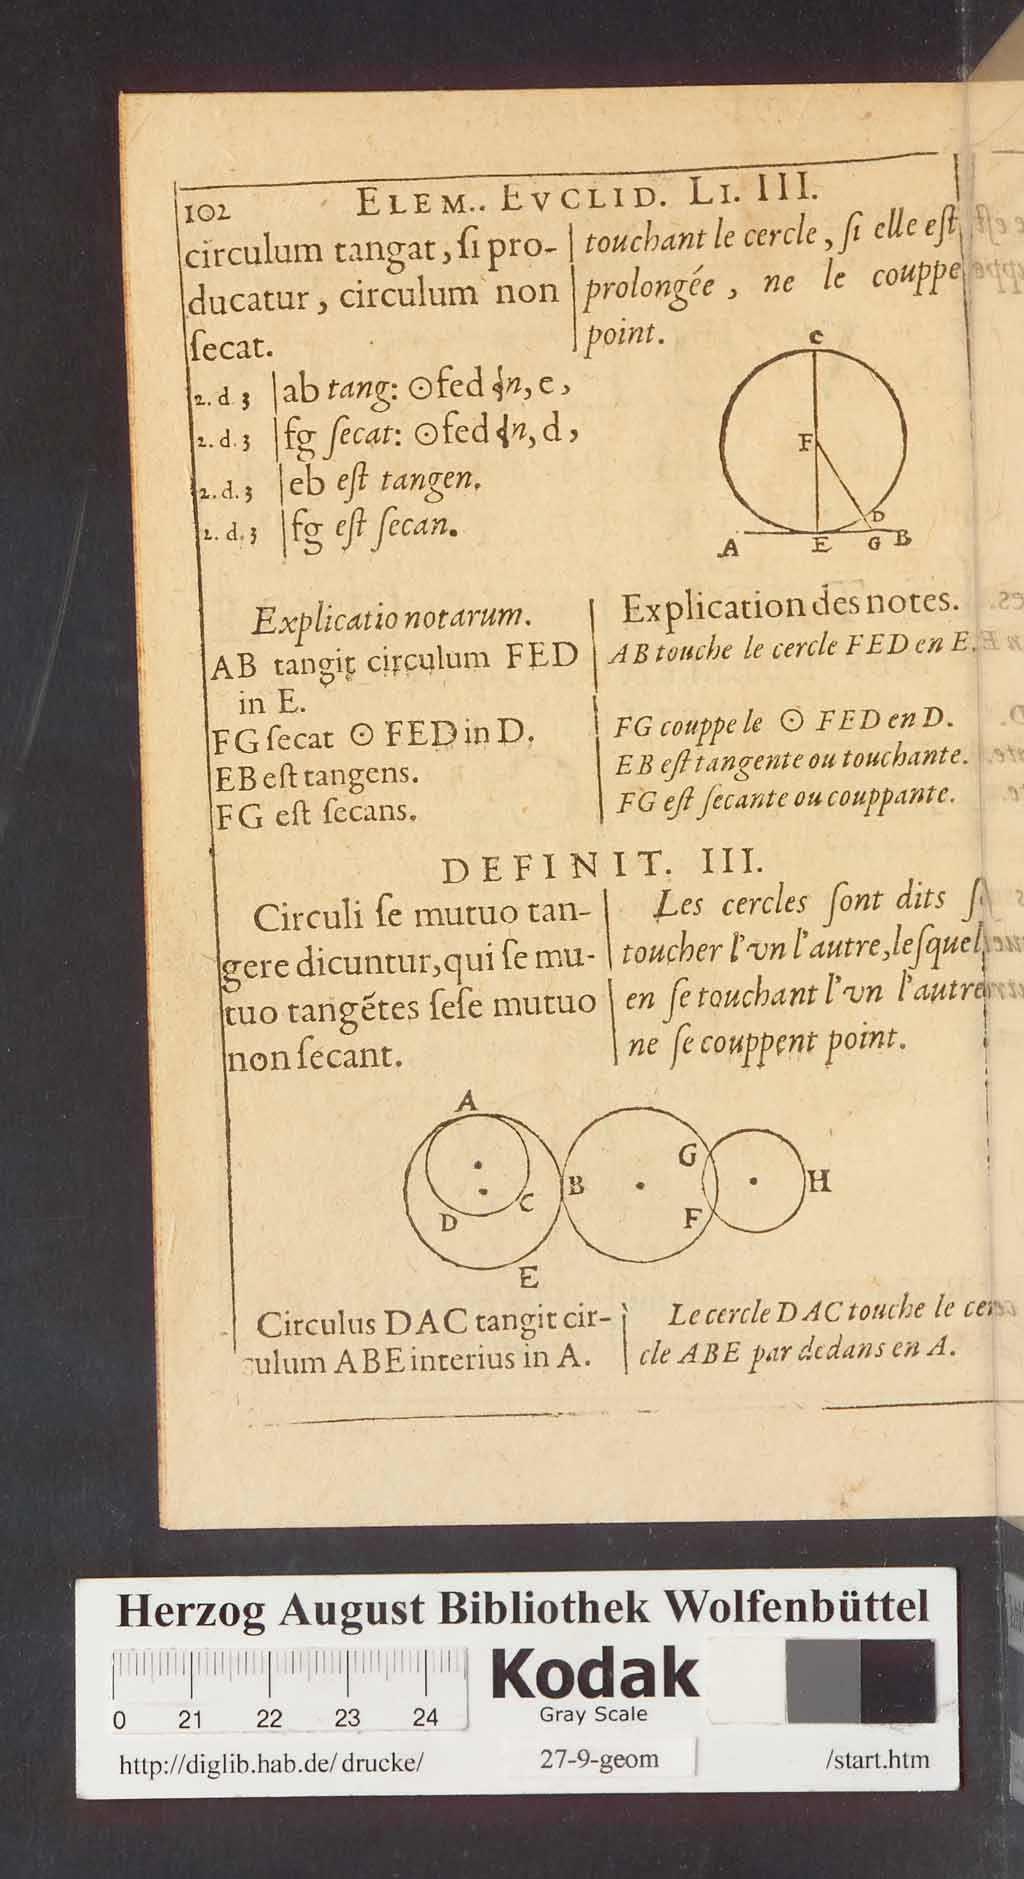 102 ELEM.. EVCLID. LI. III.
circulum tangat, ſi pro-
ducatur, circulum non
ſecat.
touchant le cercle, ſi elle eſt
prolongée, ne le couppe
point.
2. d. 3 ab tang: ⊙fed n, e,
2. d. 3 fg ſecat: ⊙fed n, d,
2. d. 3 eb eſt tangen.
2. d. 3 fg eſt ſecan.
C
F
D
A E G B
Explicatio notarum.
AB tangit circulum FED
in E.
FG ſecat ⊙ FED in D.
EB eſt tangens.
FG eſt ſecans.
Explication des notes.
AB touche le cercle FED en E.
FG couppe le ⊙ FED en D.
EB eſt tangente ou touchante.
FG eſt ſecante ou couppante.
DEFINIT. III.
Circuli ſe mutuo tan-
gere dicuntur, qui ſe mu-
tuo tangẽtes ſeſe mutuo
non ſecant.
Les cercles ſont dits
toucher l'vn l'autre, leſquel
en ſe touchant l'vn l'autre
ne ſe couppent point.
A
G
B H
C
D F
E
Circulus DAC tangit cir-
culum ABE interius in A.
Le cercle DAC touche le cer
cle ABE par dedans en A.
Herzog August Bibliothek Wolfenbüttel
Kodak
Gray Scale
0 21 22 23 24
http://diglib.hab.de/drucke/ 27-9-geom /start.htm